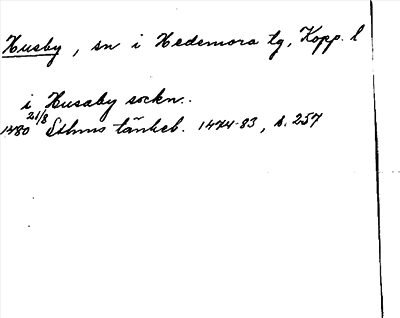 Husby, sn i Hedemora tg, Kopp. l
i Husaby sockn.
1480 21/8 Sthms tänkeb. 1474-83, s. 257